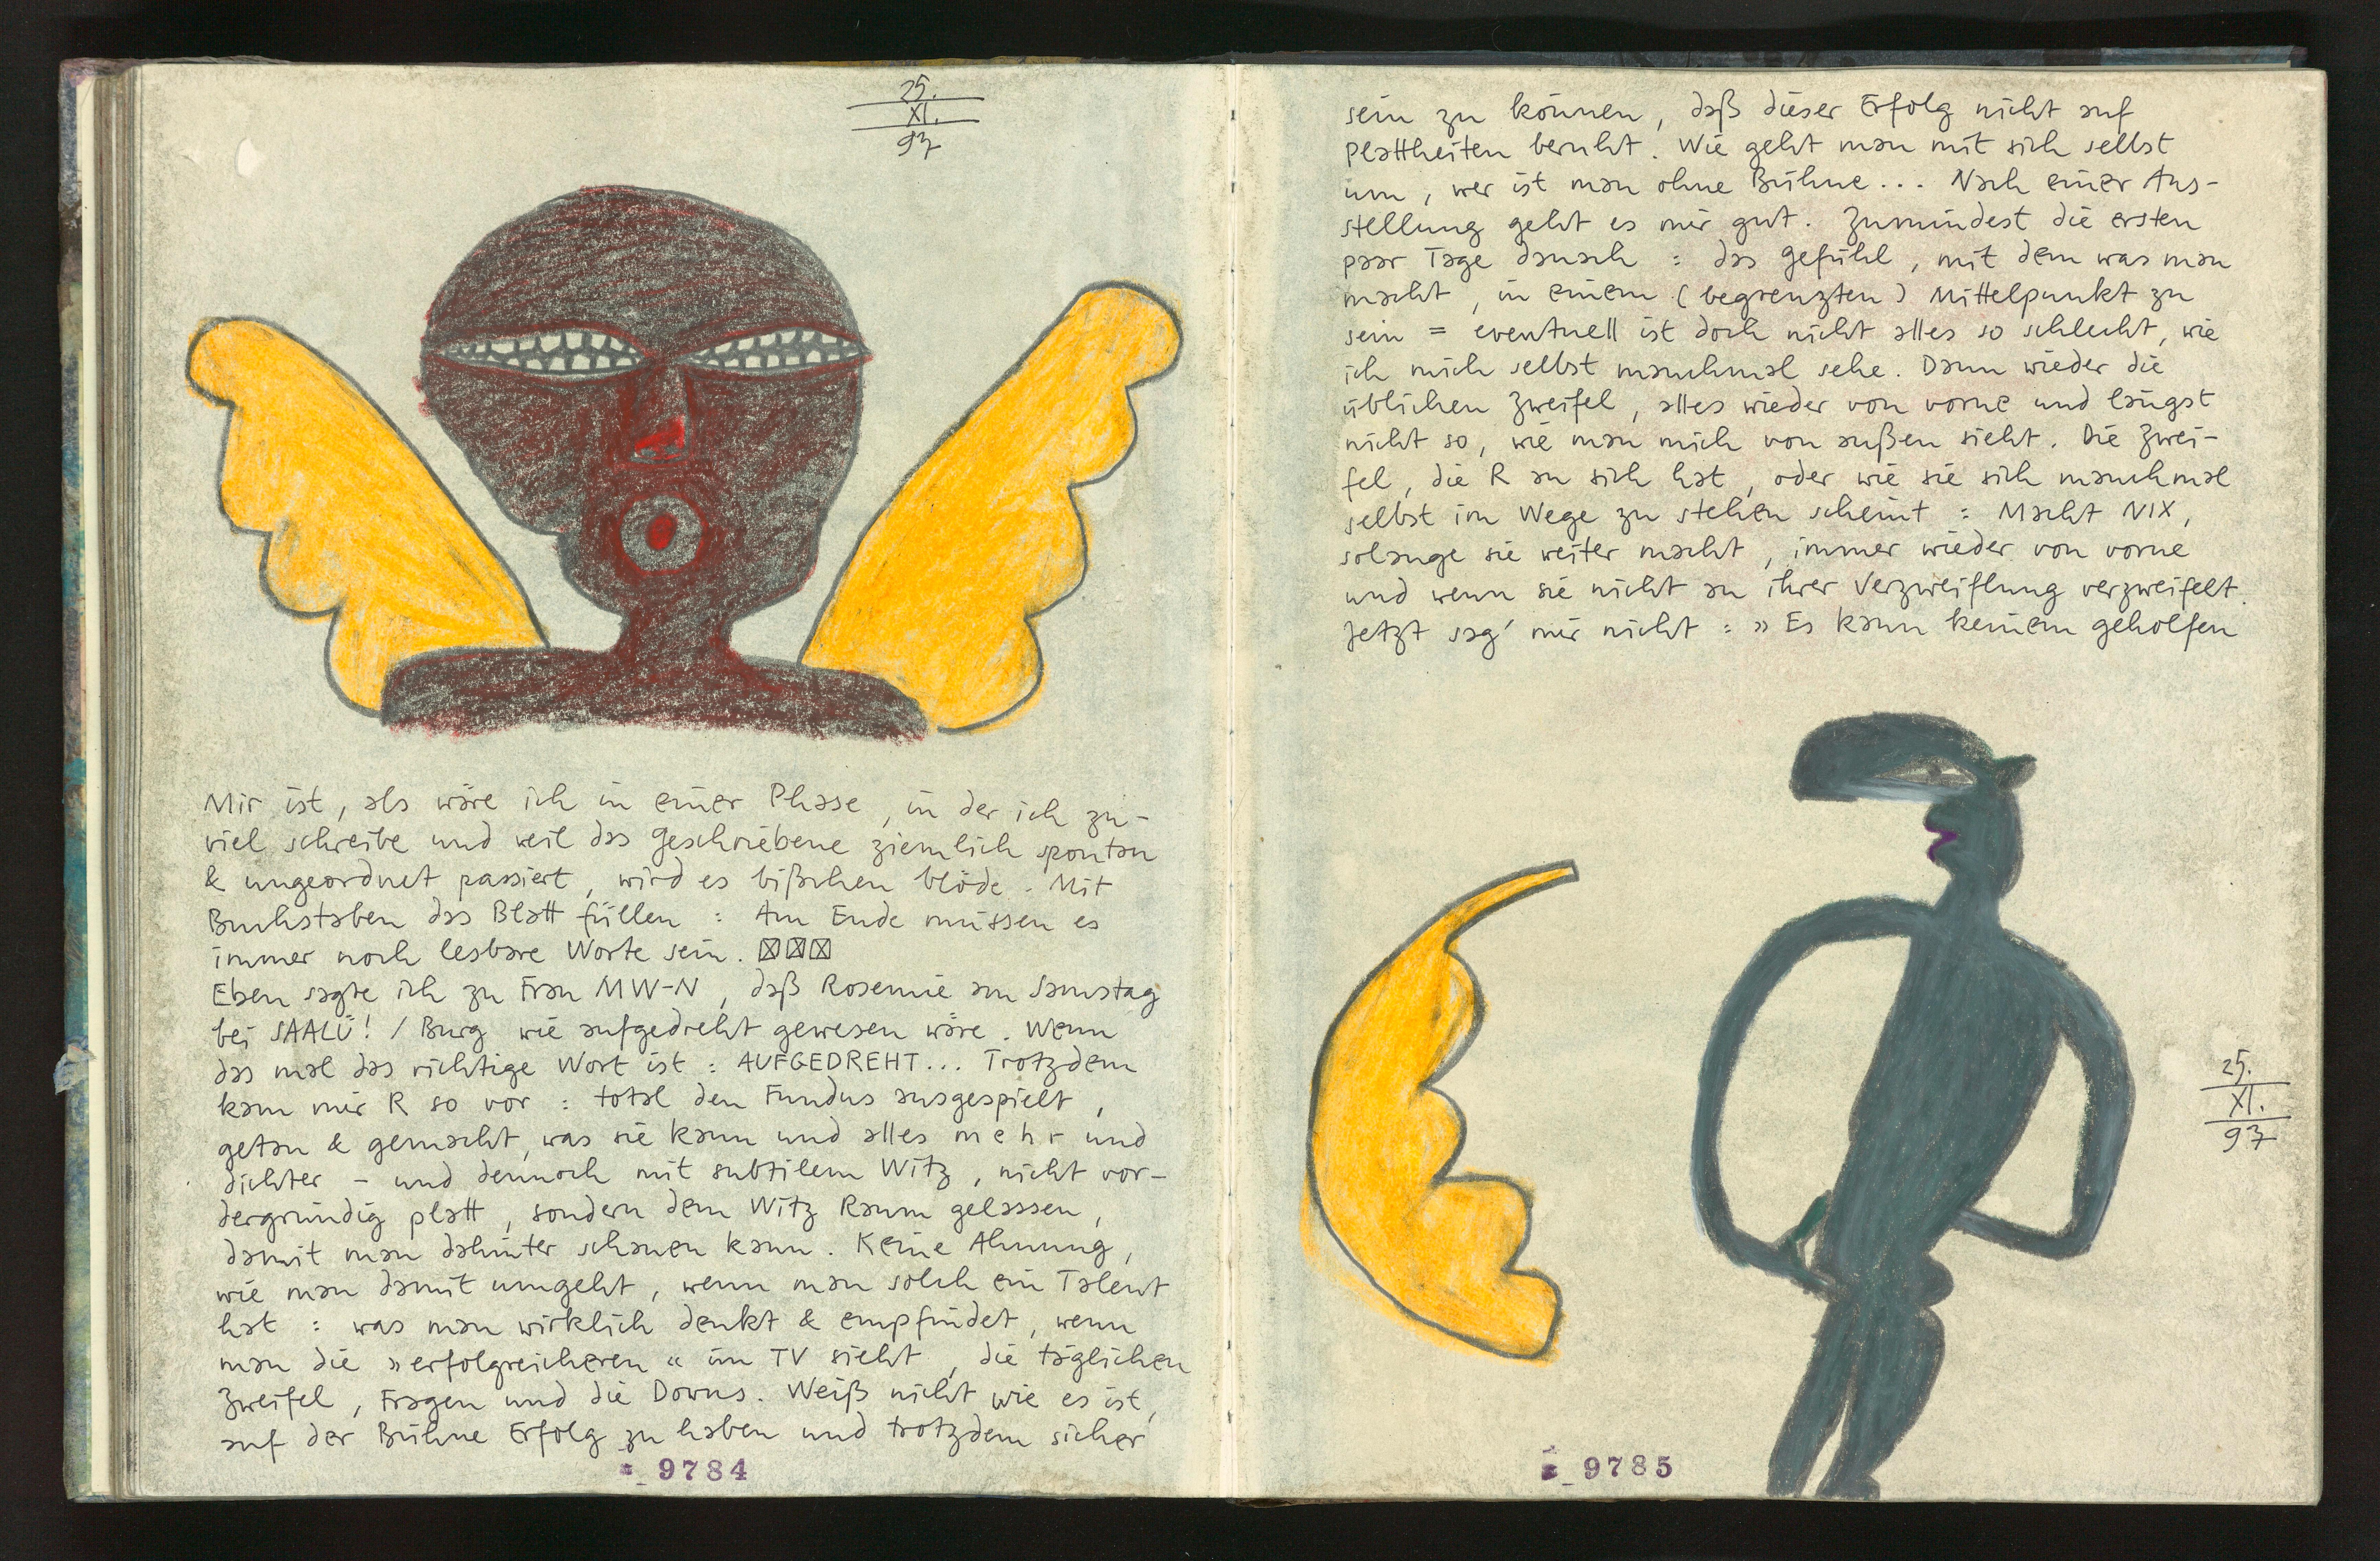 25.
XI.
97
Mir ist, als wäre ich in einer Phase, in der ich zu-
viel schreibe und weil das Geschriebene ziemlich spontan
& ungeordnet passiert, wird es bißchen blöde. Mit
Buchstaben das Blatt füllen : Am Ende müssen es
immer noch lesbare Worte sein. ☒☒☒
Eben sagte ich zu Frau MW-N, daß Rosemie am Samstag
bei SAALÜ! / Burg wie aufgedreht gewesen wäre. Wenn
das mal das richtige Wort ist : AUFGEDREHT... Trotzdem
kam mir R so vor : total den Fundus ausgespielt,
getan & gemacht, was sie kann und alles mehr und
dichter – und dennoch mit subtilem Witz, nicht vor-
dergründig platt, sondern dem Witz Raum gelassen,
damit man dahinter schauen kann. Keine Ahnung,
wie man damit umgeht, wenn man solch ein Talent
hat : was man wirklich denkt & empfindet, wenn
man die »erfolgreicheren« im TV sieht, die täglichen
Zweifel, Fragen und die Downs. Weiß nicht wie es ist,
auf der Bühne Erfolg zu haben und trotzdem sicher
9784
sein zu können, daß dieser Erfolg nicht auf
Plattheiten beruht. Wie geht man mit sich selbst
um, wer ist man ohne Bühne... Nach einer Aus-
stellung geht es mir gut. Zumindest die ersten
paar Tage danach : das Gefühl, mit dem was man
macht, in einem (begrenzten) Mittelpunkt zu
sein = eventuell ist doch nicht alles so schlecht, wie
ich mich selbst manchmal sehe. Dann wieder die
üblichen Zweifel, alles wieder von vorne und längst
nicht so, wie man mich von außen sieht. Die Zwei-
fel, die R an sich hat, oder wie sie sich manchmal
selbst im Wege zu stehen scheint : Macht NIX,
solange sie weiter macht, immer wieder von vorne
und wenn sie nicht an ihrer Verzweiflung verzweifelt.
Jetzt sag' mir nicht : »Es kann keinem geholfen
25.
XI.
97
9785